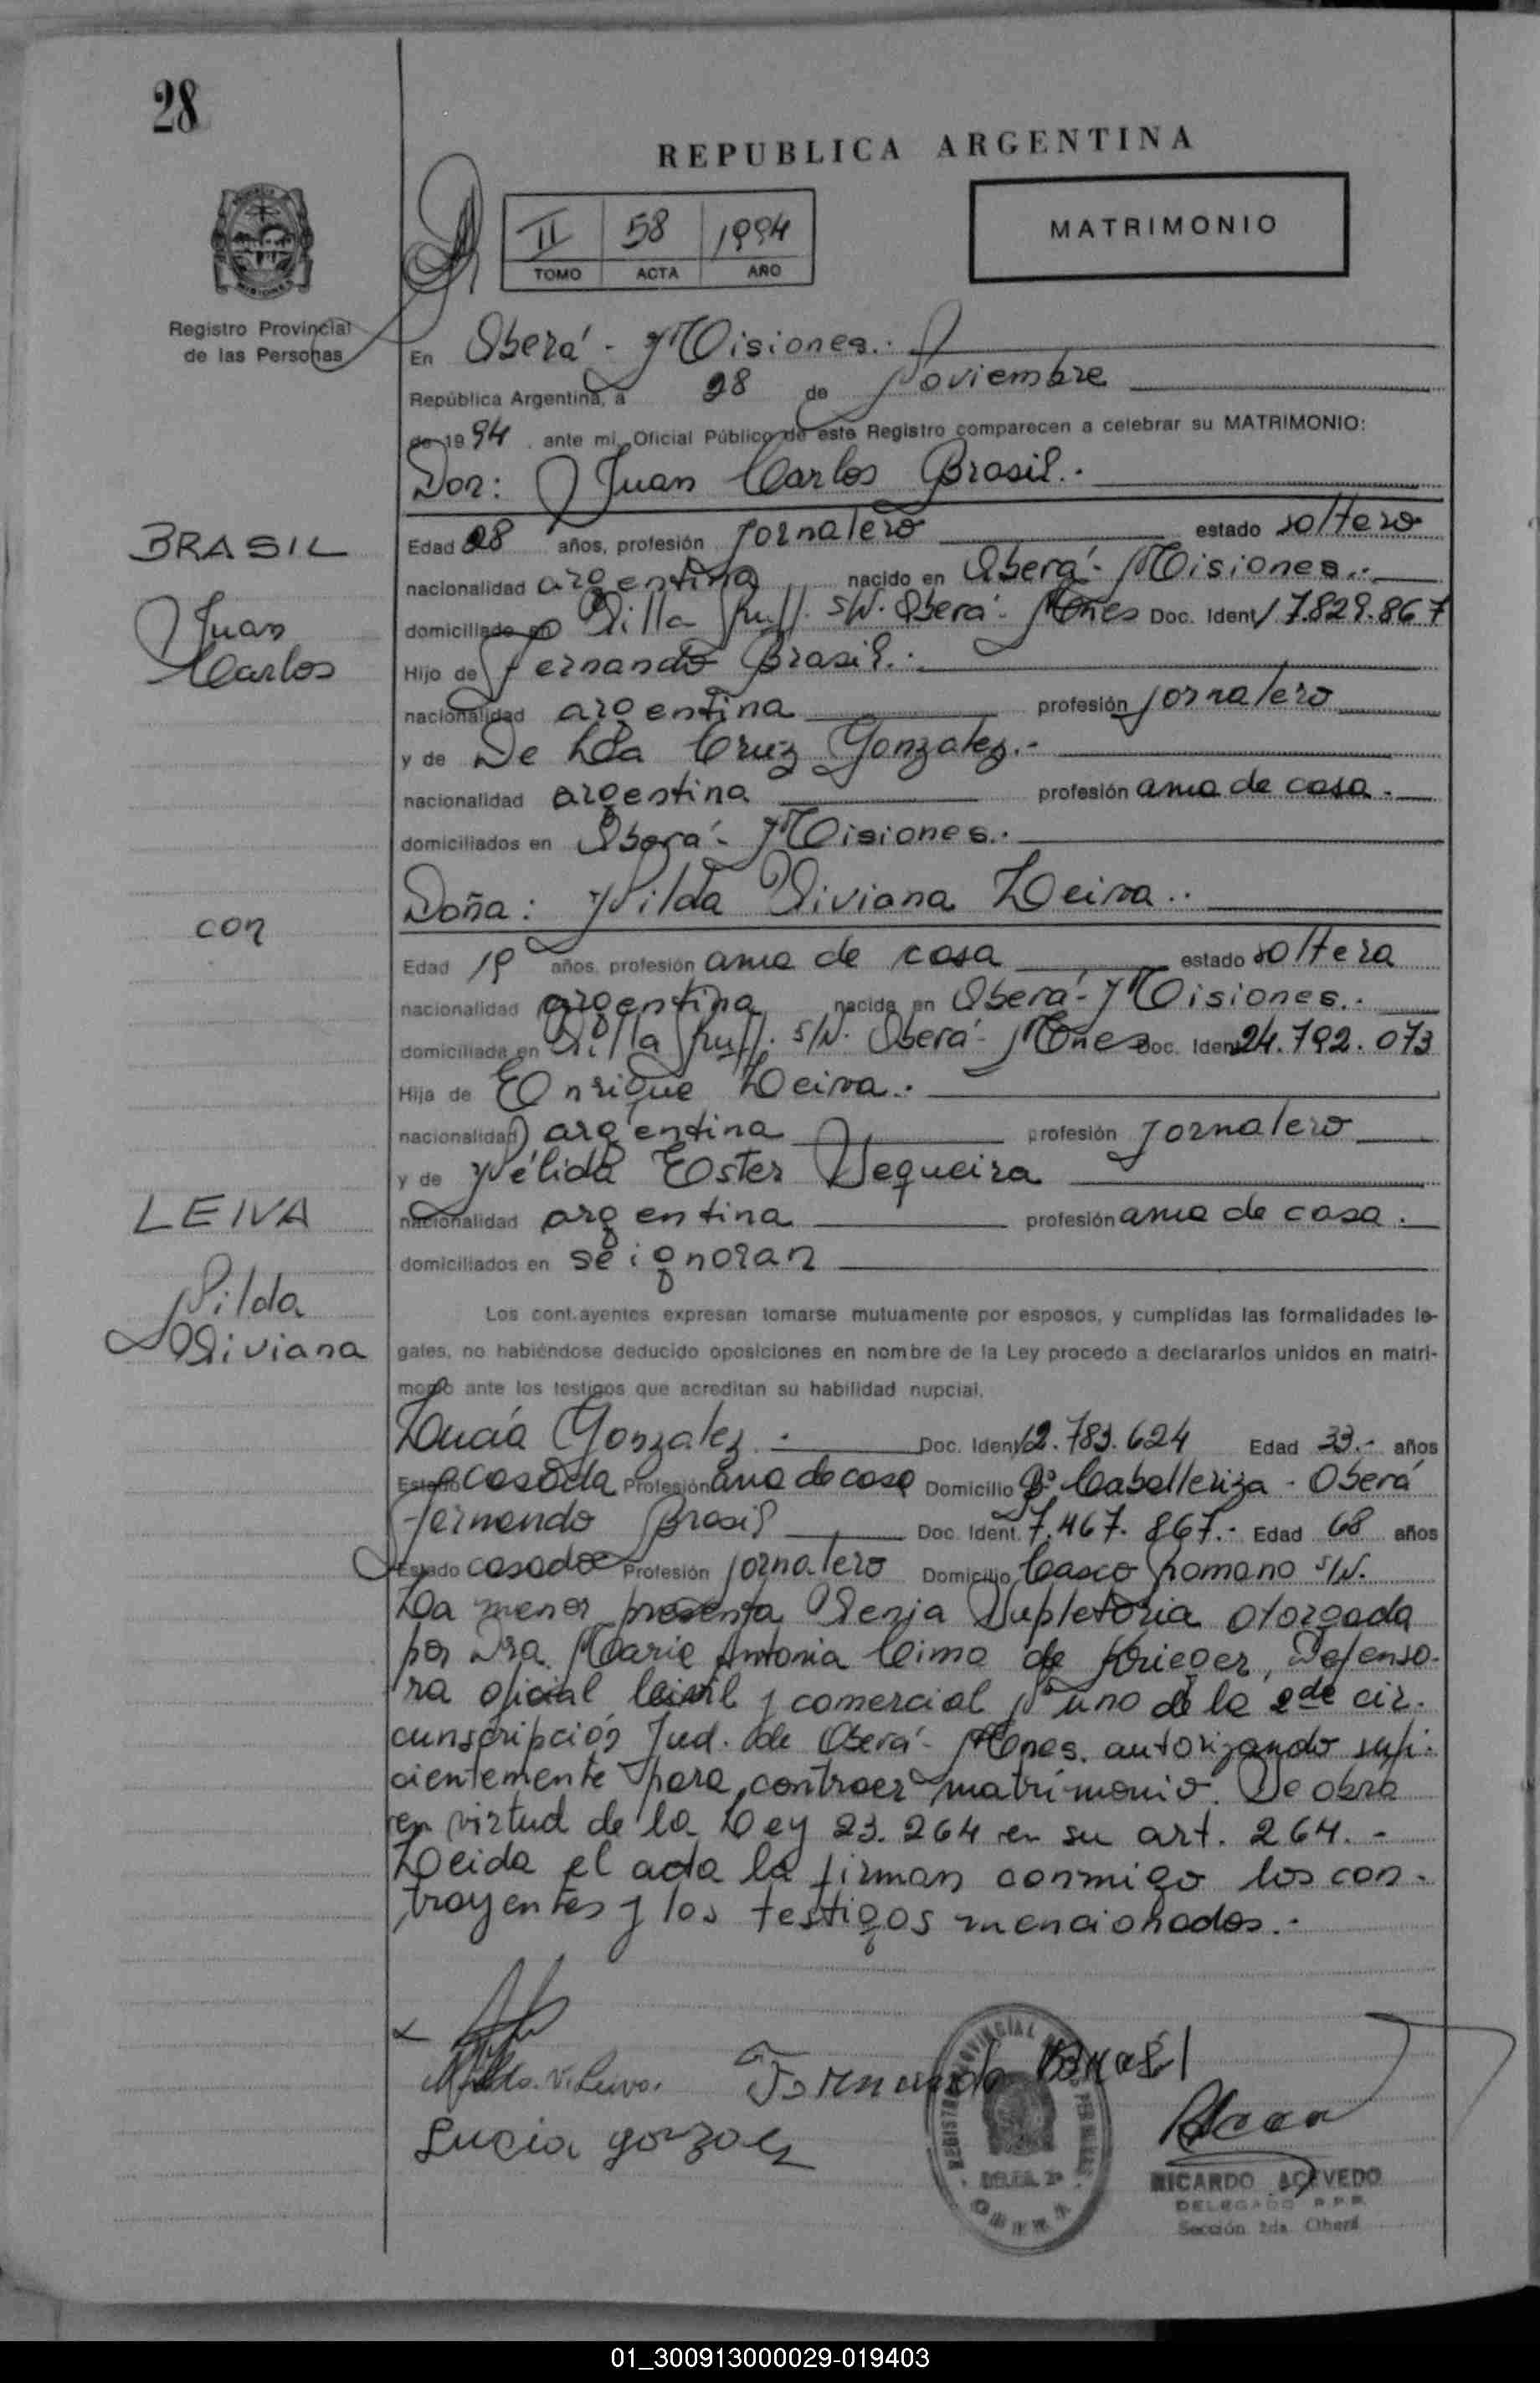 28
REPUBLICA ARGENTINA
II 58 1994
TOMO ACTA AÑO
MATRIMONIO
Registro Provincial
de las Personas
En Oberá - Misiones.-
República Argentina, a 28 de Noviembre
de 1994 ante mi, Oficial Público de este Registro comparecen a celebrar su MATRIMONIO:
Don: Juan Carlos Brasil.-
BRASIL
Juan
Carlos
Edad 28 años, profesión Jornalero estado soltero
nacionalidad argentina nacido en Oberá - Misiones.-
domiciliado en Villa s/N. Oberá - Mnes Doc. Ident. 17.829.867
Hijo de Fernando Brasil.-
nacionalidad argentina profesión Jornalero
y de De La Cruz Gonzalez.-
nacionalidad argentina profesión ama de casa.-
domiciliados en Oberá - Misiones.-
con
Doña: Nilda Viviana Leiva.-
Edad 19 años, profesión ama de casa estado soltera
nacionalidad argentina nacida en Oberá - Misiones.-
domiciliada en Villa s/N. Oberá - Mnes Doc. Ident. 24.792.073
Hija de Enrique Leiva.-
nacionalidad argentina profesión Jornalero
y de Nélida Ester Sequeira
nacionalidad argentina profesión ama de casa.
domiciliados en se ignoran
LEIVA
Nilda
Viviana
Los cont.ayentes expresan tomarse mutuamente por esposos, y cumplidas las formalidades le-
gales, no habiéndose deducido oposiciones en nombre de la Ley procedo a declararlos unidos en matri-
monio ante los testigos que acreditan su habilidad nupcial.
Lucía Gonzalez.- Doc. Ident. 12.783.624 Edad 33.- años
Estado casada Profesión ama de casa Domicilio Bº Caballeriza - Oberá
Fernando Brasil Doc. Ident. 7.467.867.- Edad 68 años
Estado casado Profesión Jornalero Domicilio Casco s/N.
La menor presenta Venia Supletoria otorgada
por Dra. Maria Antonia Cima de Krieger, Defenso-
ra oficial Civil y comercial Nº uno de la 2da cir-
cunscripción Jud. de Oberá - Mnes. autorizando sufi-
cientemente para contraer matrimonio. Se obra
en virtud de la Ley 23.264 en su art. 264.-
Leida el acta la firman conmigo los con-
trayentes y los testigos mencionados.-
Nilda. V. Leiva.
Fernando Brasil
Lucia gonzalez
REGISTRO PROVINCIAL DE LAS PERSONAS
DELEG. 2ª
OBERA
RICARDO ACEVEDO
DELEGADO R.P.P.
Sección 2da. Oberá
01_300913000029-019403